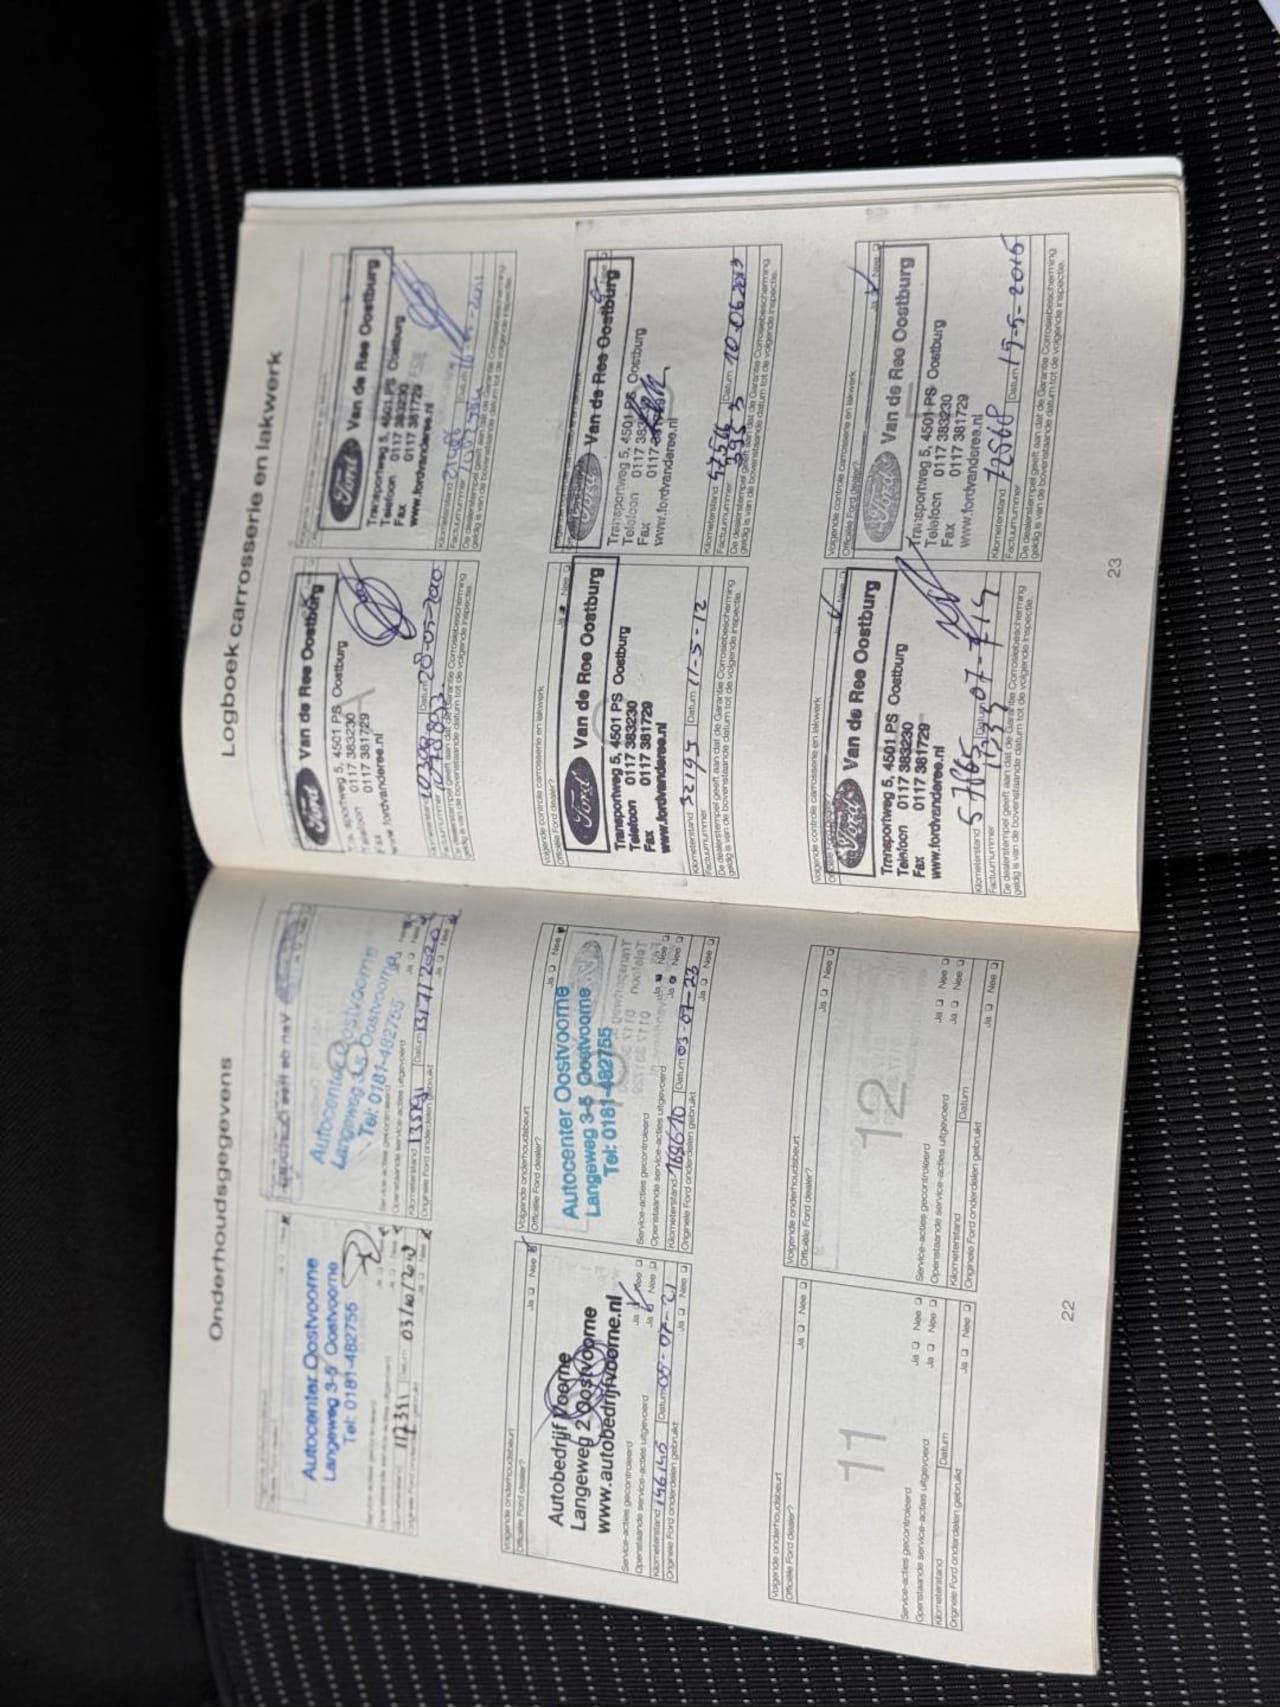 Onderhoudsgegevens
Autocenter Oostvoorne
Langeweg 3-5 Oostvoorne
Tel: 0181-482755
Datum 03/10/20
Autocenter Oostvoorne
Langeweg 3-5 Oostvoorne
Tel: 0181-482755
Service-acties gecontroleerd
Openstaande service-acties uitgevoerd
Kilometerstand Datum 13/7/2020
Originele Ford onderdelen gebruikt Ja Nee
Volgende onderhoudsbeurt
Officiële Ford dealer? Ja Nee
Autobedrijf Voorne
Langeweg 2 Oostvoorne
www.autobedrijfvoorne.nl
Service-acties gecontroleerd Ja Nee
Openstaande service-acties uitgevoerd Ja Nee
Kilometerstand 146140 Datum 05-07-21
Originele Ford onderdelen gebruikt Ja Nee
Volgende onderhoudsbeurt
Officiële Ford dealer? Ja Nee
Autocenter Oostvoorne
Langeweg 3-5 Oostvoorne
Tel: 0181-482755
Service-acties gecontroleerd Ja Nee
Openstaande service-acties uitgevoerd Ja Nee
Kilometerstand 169610 Datum 03-07-23
Originele Ford onderdelen gebruikt Ja Nee
Volgende onderhoudsbeurt
Officiële Ford dealer? Ja Nee
11
Service-acties gecontroleerd Ja Nee
Openstaande service-acties uitgevoerd Ja Nee
Kilometerstand Datum
Originele Ford onderdelen gebruikt Ja Nee
Volgende onderhoudsbeurt
Officiële Ford dealer? Ja Nee
12
Service-acties gecontroleerd Ja Nee
Openstaande service-acties uitgevoerd Ja Nee
Kilometerstand Datum
Originele Ford onderdelen gebruikt Ja Nee
22
Logboek carrosserie en lakwerk
Ford Van de Ree Oostburg
Transportweg 5, 4501 PS Oostburg
Telefoon 0117 383230
Fax 0117 381729
www.fordvanderee.nl
Kilometerstand Datum 28-05-2010
Factuurnummer
De dealerstempel geeft aan dat de Garantie Corrosiebescherming
geldig is van de bovenstaande datum tot de volgende inspectie.
Ford Van de Ree Oostburg
Transportweg 5, 4501 PS Oostburg
Telefoon 0117 383230
Fax 0117 381729
www.fordvanderee.nl
Kilometerstand Datum
Factuurnummer
De dealerstempel geeft aan dat de Garantie Corrosiebescherming
geldig is van de bovenstaande datum tot de volgende inspectie.
Volgende controle carrosserie en lakwerk
Officiële Ford dealer? Ja Nee
Ford Van de Ree Oostburg
Transportweg 5, 4501 PS Oostburg
Telefoon 0117 383230
Fax 0117 381729
www.fordvanderee.nl
Kilometerstand 32195 Datum 11-5-12
Factuurnummer
De dealerstempel geeft aan dat de Garantie Corrosiebescherming
geldig is van de bovenstaande datum tot de volgende inspectie.
Ford Van de Ree Oostburg
Transportweg 5, 4501 PS Oostburg
Telefoon 0117 383230
Fax 0117 381729
www.fordvanderee.nl
Kilometerstand Datum 10-06-2013
Factuurnummer
De dealerstempel geeft aan dat de Garantie Corrosiebescherming
geldig is van de bovenstaande datum tot de volgende inspectie.
Volgende controle carrosserie en lakwerk
Ja Nee
Ford Van de Ree Oostburg
Transportweg 5, 4501 PS Oostburg
Telefoon 0117 383230
Fax 0117 381729
www.fordvanderee.nl
Kilometerstand 57865 Datum
Factuurnummer
De dealerstempel geeft aan dat de Garantie Corrosiebescherming
geldig is van de bovenstaande datum tot de volgende inspectie.
Volgende controle carrosserie en lakwerk
Officiële Ford dealer? Ja Nee
Ford Van de Ree Oostburg
Transportweg 5, 4501 PS Oostburg
Telefoon 0117 383230
Fax 0117 381729
www.fordvanderee.nl
Kilometerstand 72568 Datum 15-5-2015
Factuurnummer
De dealerstempel geeft aan dat de Garantie Corrosiebescherming
geldig is van de bovenstaande datum tot de volgende inspectie.
23